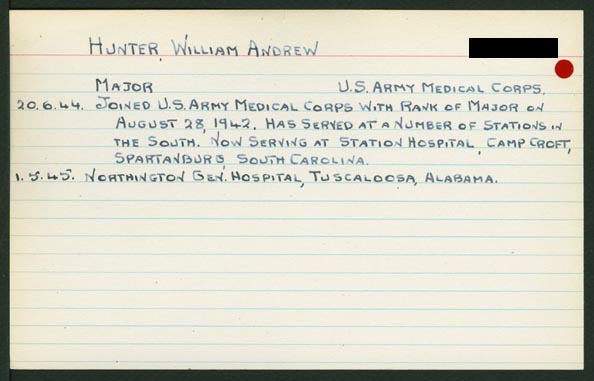 HUNTER, WILLIAM ANDREW
MAJOR U.S. ARMY MEDICAL CORPS.
20.6.44. JOINED U.S. ARMY MEDICAL CORPS WITH RANK OF MAJOR ON
AUGUST 28, 1942. HAS SERVED AT A NUMBER OF STATIONS IN
THE SOUTH. NOW SERVING AT STATION HOSPITAL, CAMP CROFT,
SPARTANBURG, SOUTH CAROLINA.
1.5.45. NORTHINGTON GEN. HOSPITAL, TUSCALOOSA, ALABAMA.